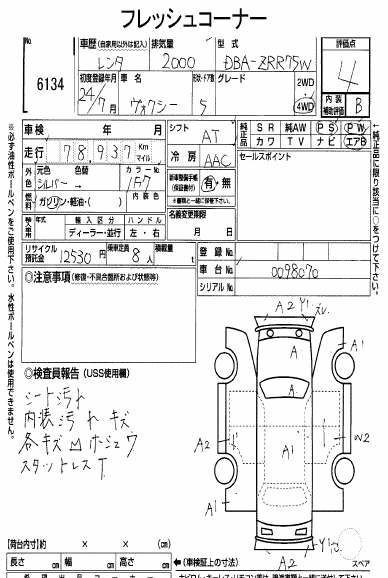 フレッシュコーナー
No. 6134
車歴(自家用以外は記入) レンタ
排気量 2000
型式 DBA-ZRR75W
評価点 4
内装補助評価 B
初度登録年月 24/7月
車名 ヴォクシー
型状・ドア数 5
グレード
2WD
4WD
車検 年 月
シフト AT
純正品 SR 純AW PS PW
カワ TV ナビ エアB
走行 78,937 Km マイル
冷房 AAC
セールスポイント
外色 元色 シルバー → 色替
カラーNo. 1F7
新車整備手帳(保証書付) 有・無
※書類と一緒に保管下さい。
燃料 ガソリン・軽油・( )
内装色
名義変更期限 月 日
年式
輸入区分 ディーラー・並行
ハンドル 左・右
リサイクル預託金 12530円
乗車定員 8人
積載量 t
登録No.
車台No. 0098070
シリアルNo.
◎注意事項(修復・不具合箇所および状態等)
◎検査員報告(USS使用欄)
シート汚れ
内張汚れ キズ
各キズ凹ホシュウ
スタットレスT
A2 Y1 ズレ
A
A1
A1
A2
A1
Y1
W2
A1
A1
A
A2
Y1
スペア
【荷台内寸】約 × × (cm)
長さ cm 幅 cm 高さ cm
←(車検証上の寸法)
※必ず油性ボールペンをご使用下さい。水性ボールペンは使用できません。
※純正品に限り該当に○をつけて下さい。